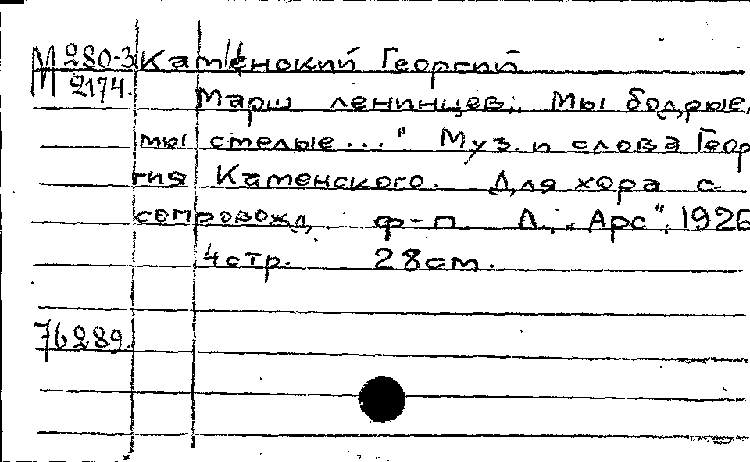 М 280-3 Каменский Георгий
2174.
Марш ленинцев. „Мы бодрые,
мы смелые..." Муз. и слова Геор
гия Каменского. Для хора с
сопровожд. ф-п. Л., „Арс", 1926
4 стр. 28 см.
76289.